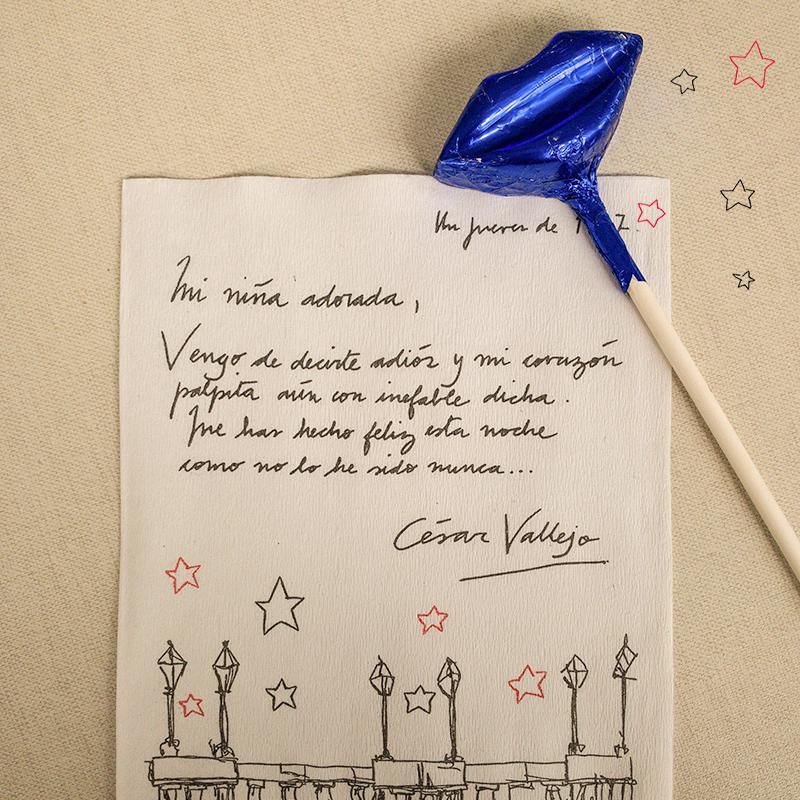 Un jueves de
Mi niña adorada,
Vengo de decirte adiós y mi corazón
palpita aún con inefable dicha.
Me has hecho feliz esta noche
como no lo he sido nunca...
César Vallejo